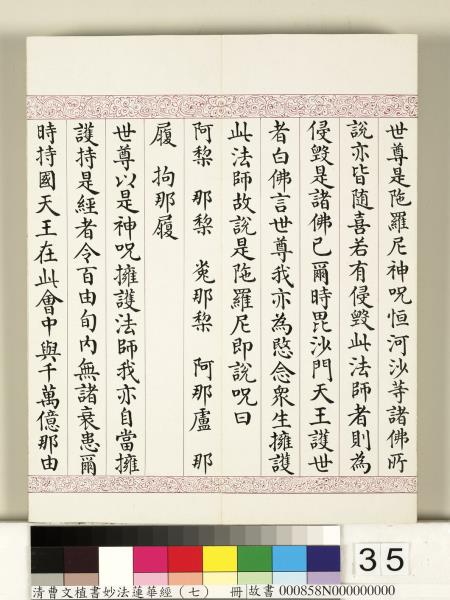 世尊是陁羅尼神呪恒河沙等諸佛所
說亦皆随喜若有侵毀此法師者則為
侵毀是諸佛已爾時毘沙門天王護世
者白佛言世尊我亦為愍念衆生擁護
此法師故說是陁羅尼即說呪曰
阿棃 那棃 㝹那棃 阿那盧 那
履 拘那履
世尊以是神呪擁護法師我亦自當擁
護持是經者令百由旬内無諸衰患爾
時持國天王在此會中與千萬億那由
35
清曹文植書妙法蓮華經（七） 冊 故書 000858N000000000